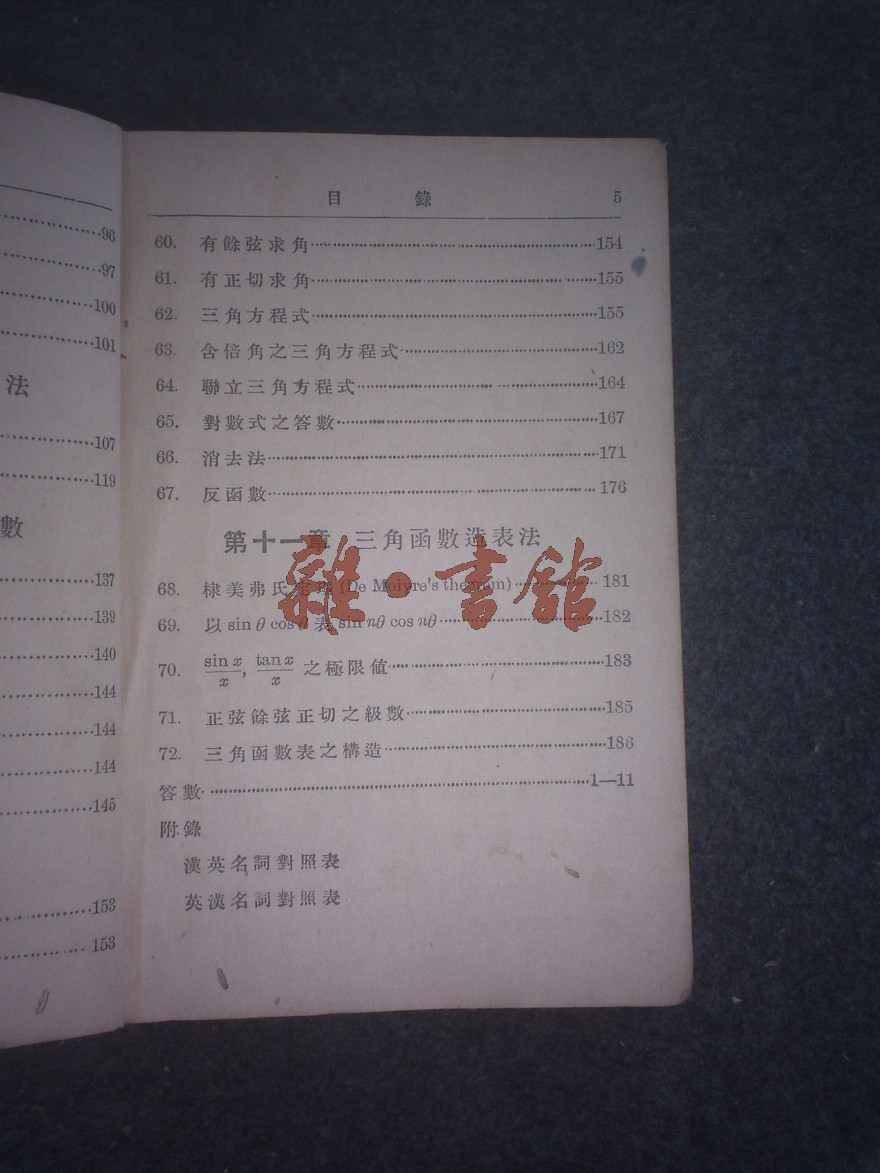 96
97
100
101
法
107
119
數
137
139
140
144
144
144
145
153
153
目 錄 5
60. 有餘弦求角 154
61. 有正切求角 155
62. 三角方程式 155
63. 含倍角之三角方程式 162
64. 聯立三角方程式 164
65. 對數式之答數 167
66. 消去法 171
67. 反函數 176
第十一章 三角函數造表法
68. 棣美弗氏定理 (De Moivre's theorem) 181
69. 以 sin θ cos θ 表 sin nθ cos nθ 182
70. sin x/x, tan x/x 之極限値 183
71. 正弦餘弦正切之級數 185
72. 三角函數表之構造 186
答數 1—11
附錄
漢英名詞對照表
英漢名詞對照表
雜·書館